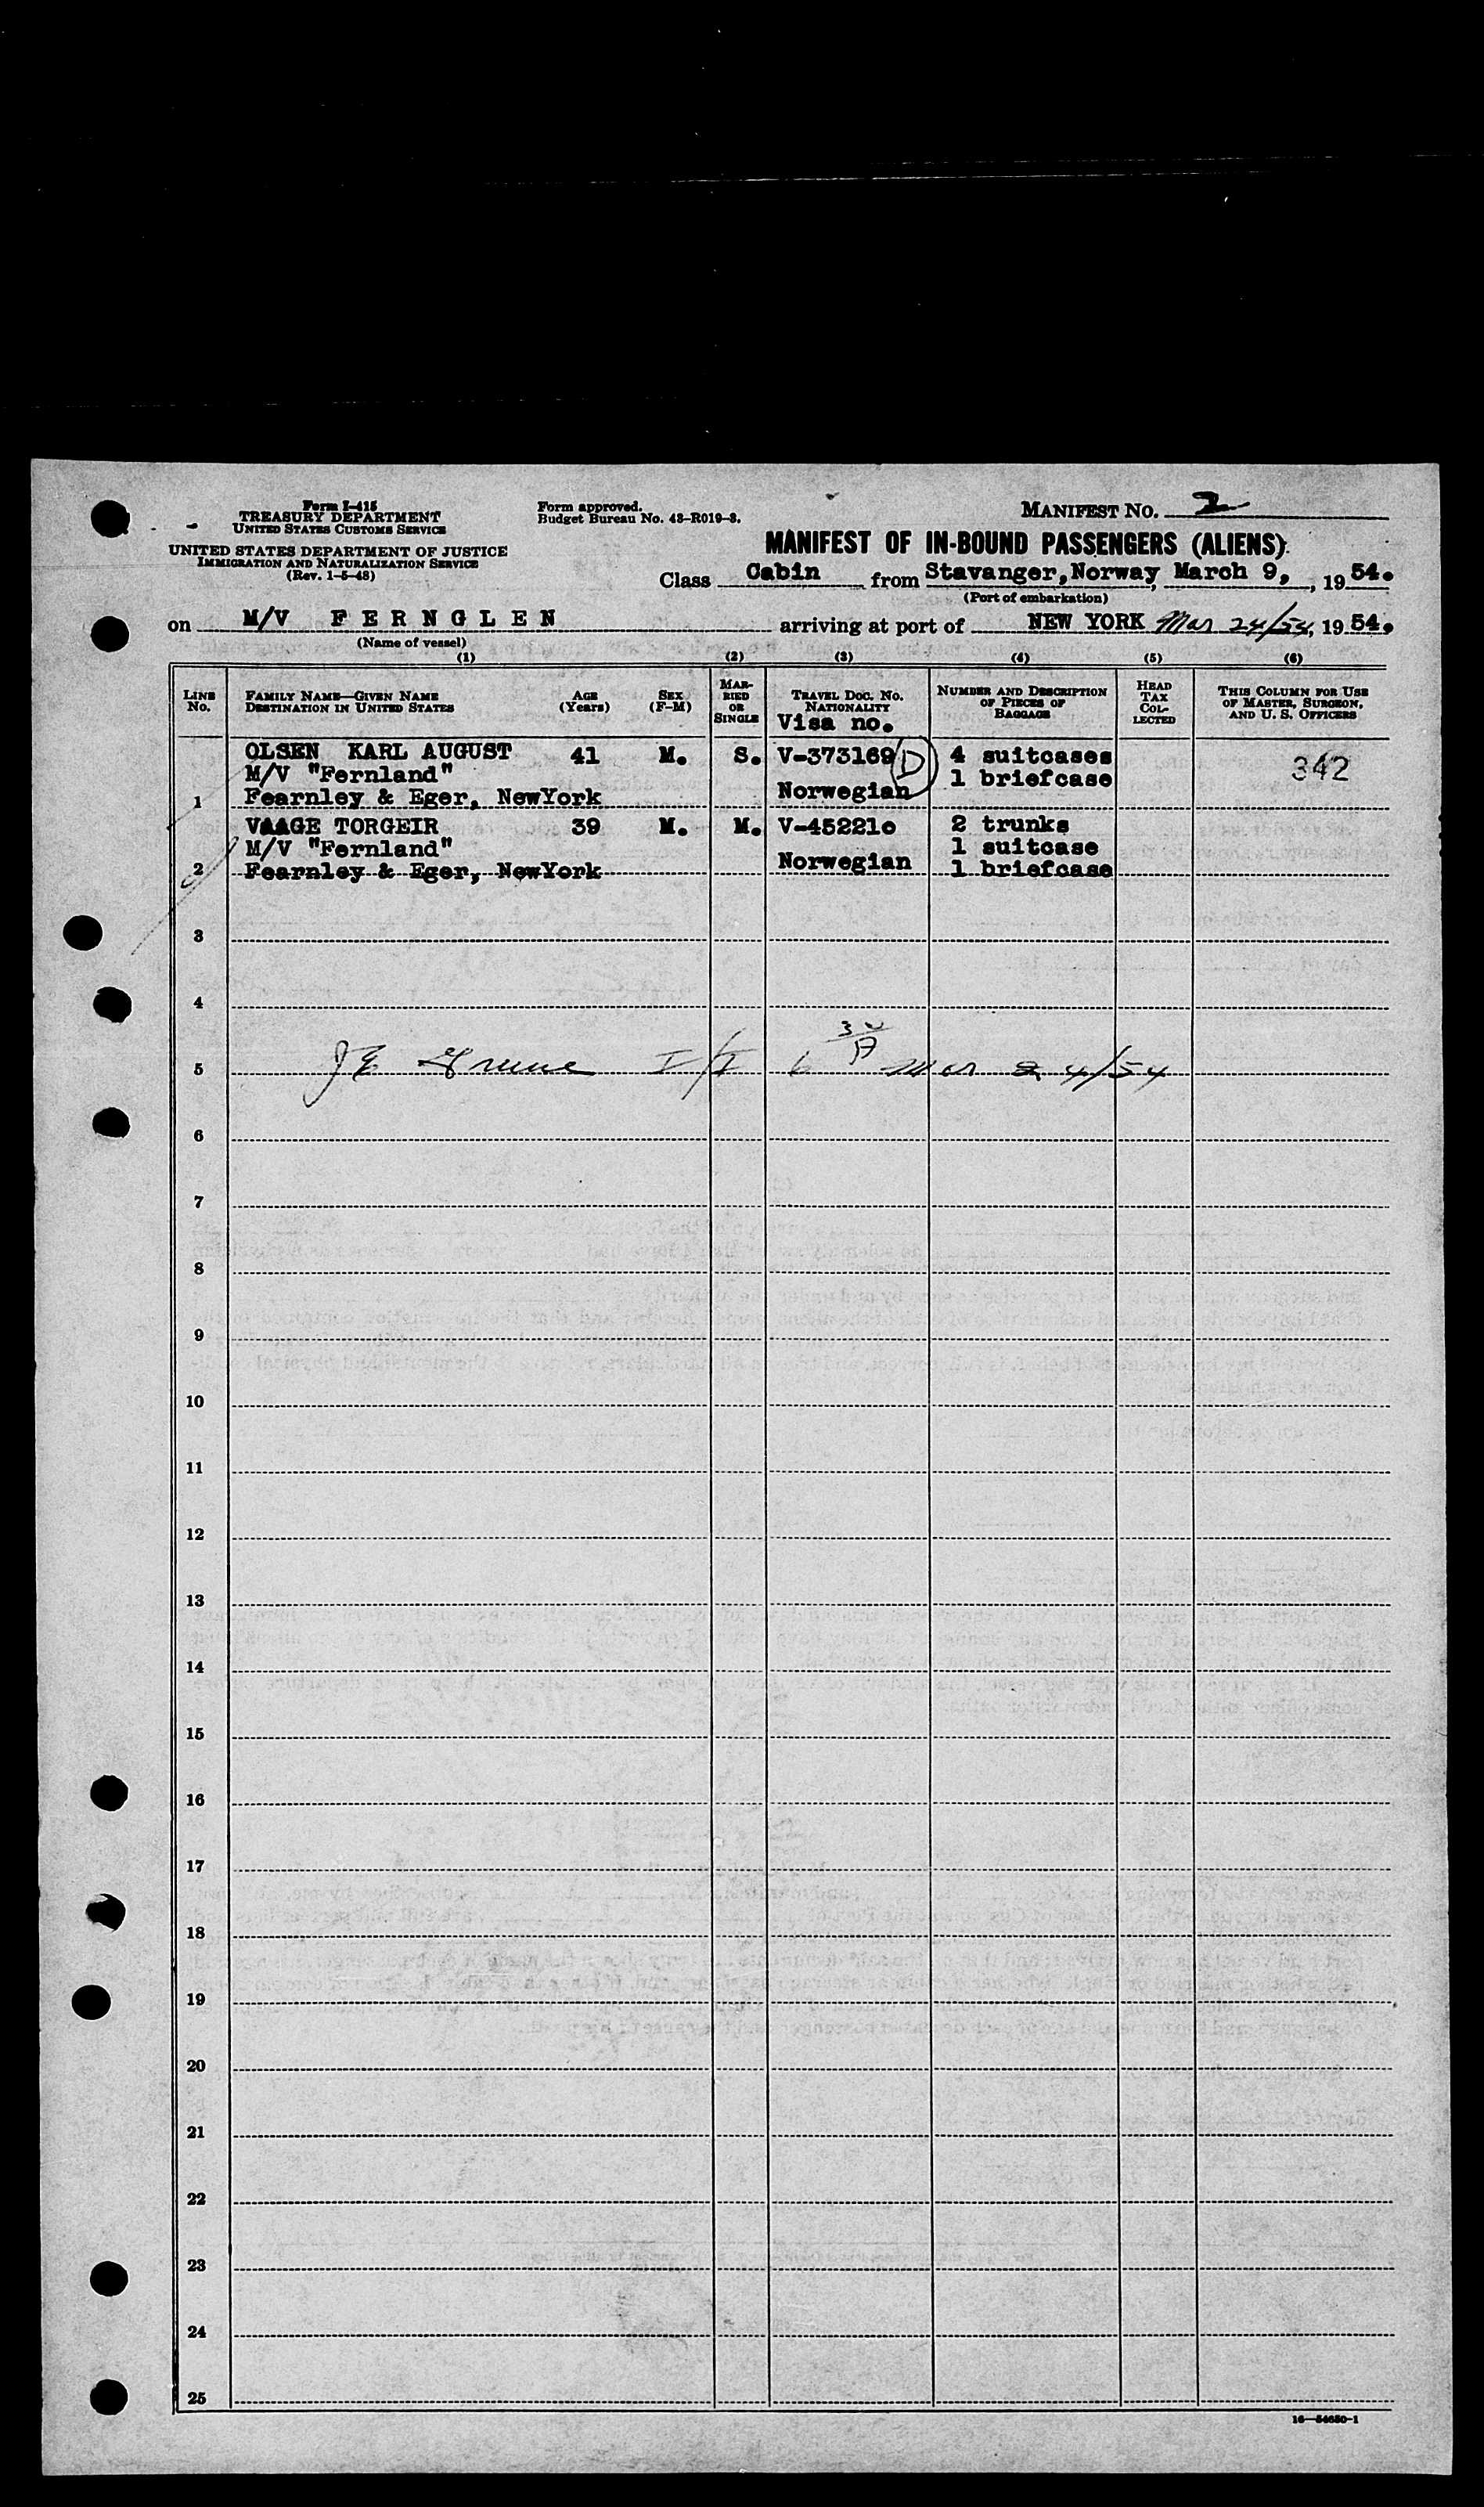 Form I-415
TREASURY DEPARTMENT
UNITED STATES CUSTOMS SERVICE
UNITED STATES DEPARTMENT OF JUSTICE
IMMIGRATION AND NATURALIZATION SERVICE
(Rev. 1-5-48)
Form approved.
Budget Bureau No. 43-R019-3.
MANIFEST NO. 2
MANIFEST OF IN-BOUND PASSENGERS (ALIENS)
Class Cabin from Stavanger, Norway, March 9, , 19 54.
(Port of embarkation)
on M/V FERNGLEN arriving at port of NEW YORK Mar 24/54, 19 54.
(Name of vessel)
(1) (2) (3) (4) (5) (6)
LINE NO. FAMILY NAME—GIVEN NAME DESTINATION IN UNITED STATES AGE (Years) SEX (F-M) MARRIED OR SINGLE TRAVEL DOC. NO. NATIONALITY Visa no. NUMBER AND DESCRIPTION OF PIECES OF BAGGAGE HEAD TAX COLLECTED THIS COLUMN FOR USE OF MASTER, SURGEON, AND U. S. OFFICERS
OLSEN KARL AUGUST 41 M. S. V-373169 D 4 suitcases 342
M/V "Fernland" 1 briefcase
1 Fearnley & Eger, NewYork Norwegian
VAAGE TORGEIR 39 M. M. V-452210 2 trunks
M/V "Fernland" 1 suitcase
2 Fearnley & Eger, NewYork Norwegian 1 briefcase
3
4
5 Mar 24/54
6
7
8
9
10
11
12
13
14
15
16
17
18
19
20
21
22
23
24
25
16—54650-1